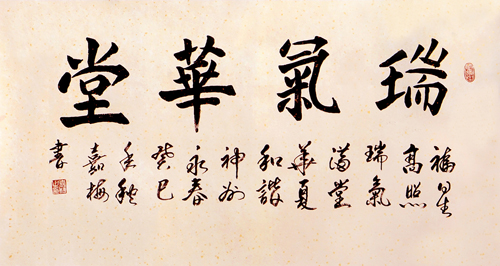 瑞氣華堂
福星
高照
瑞氣
滿堂
華夏
和諧
神州
永春
癸巳
嘉梅
書